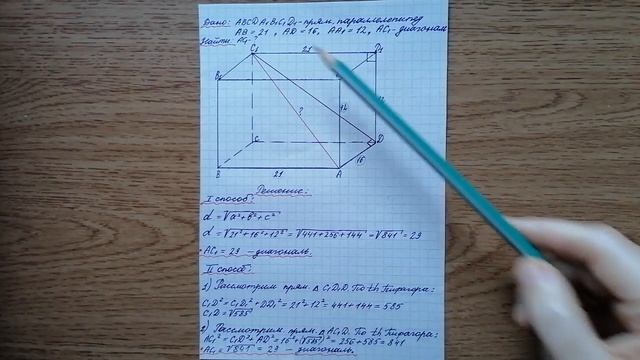 Дано: ABCDA₁B₁C₁D₁-прям. параллелепипед
AB = 21, AD = 16, AA₁ = 12, AC₁-диагональ
Найти: AC₁-?
C₁ 21 D₁
B₁
?
C D
16
B 21 A
Решение:
I способ:
d = √a²+b²+c²
d = √21²+16²+12² = √441+256+144 = √841 = 29
AC₁ = 29 - диагональ.
II способ:
1) Рассмотрим прям. △ C₁D₁D. По th Пифагора:
C₁D² = C₁D₁² + DD₁² = 21²+12² = 441+144 = 585
C₁D = √585
2) Рассмотрим прям. △ AC₁D. По th Пифагора:
AC₁² = C₁D² + AD² = 16²+(√585)² = 256+585 = 841
AC₁ = √841 = 29 - диагональ.